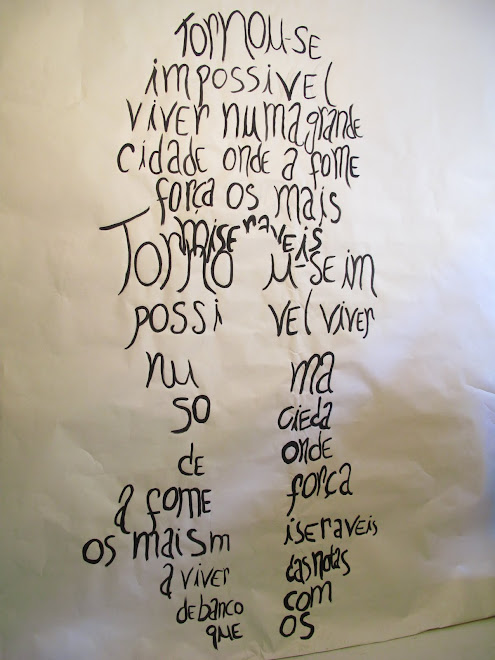 TORNOU-SE
impossivel
viver numa grande
cidade onde a fome
força os mais
miseraveis
Torno u-se im
possi vel viver
nu ma
so cieda
de onde
a fome força
os mais m iseraveis
a viver das notas
de banco com
que os